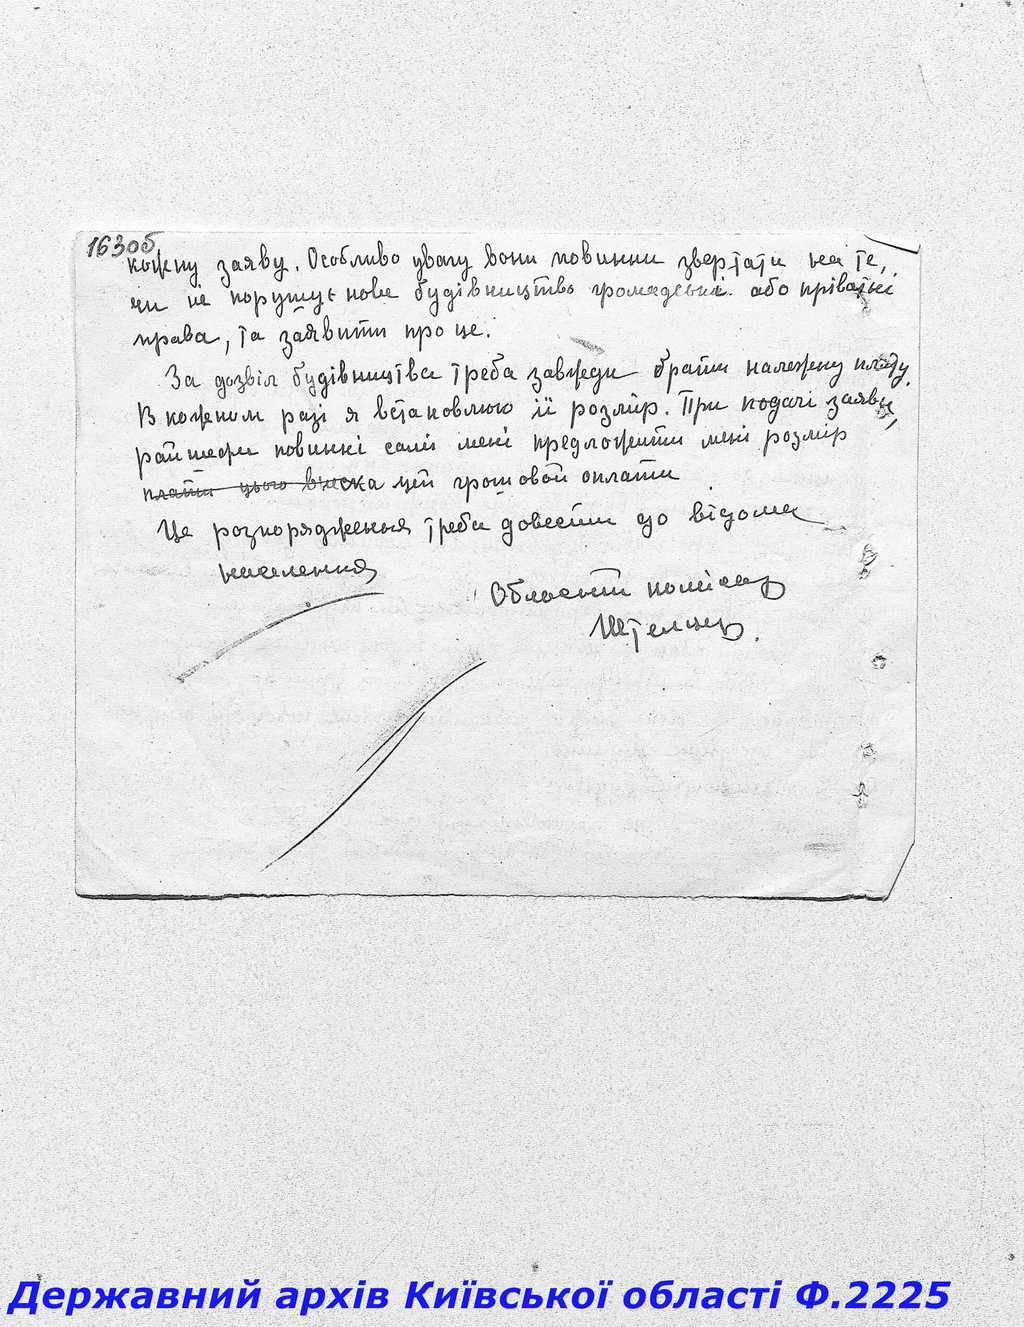 163об
кожну заяву. Особливо увагу вони повинни звертати на те,
чи не порушує нове будівництво громадські або пріватні
права, та заявити про це.
За дозвіл будівництва треба завжди брати належну плату.
В кожном разі я встановлюю її розмір. При подачі заяви,
райшефи повинні самі мені предложити мені розмір
плати цього внеска цей грошовой оплати
Це розпорядження треба довести до відома
населення
Обласьти комісар
Штельцер.
Державний архів Київської області Ф.2225